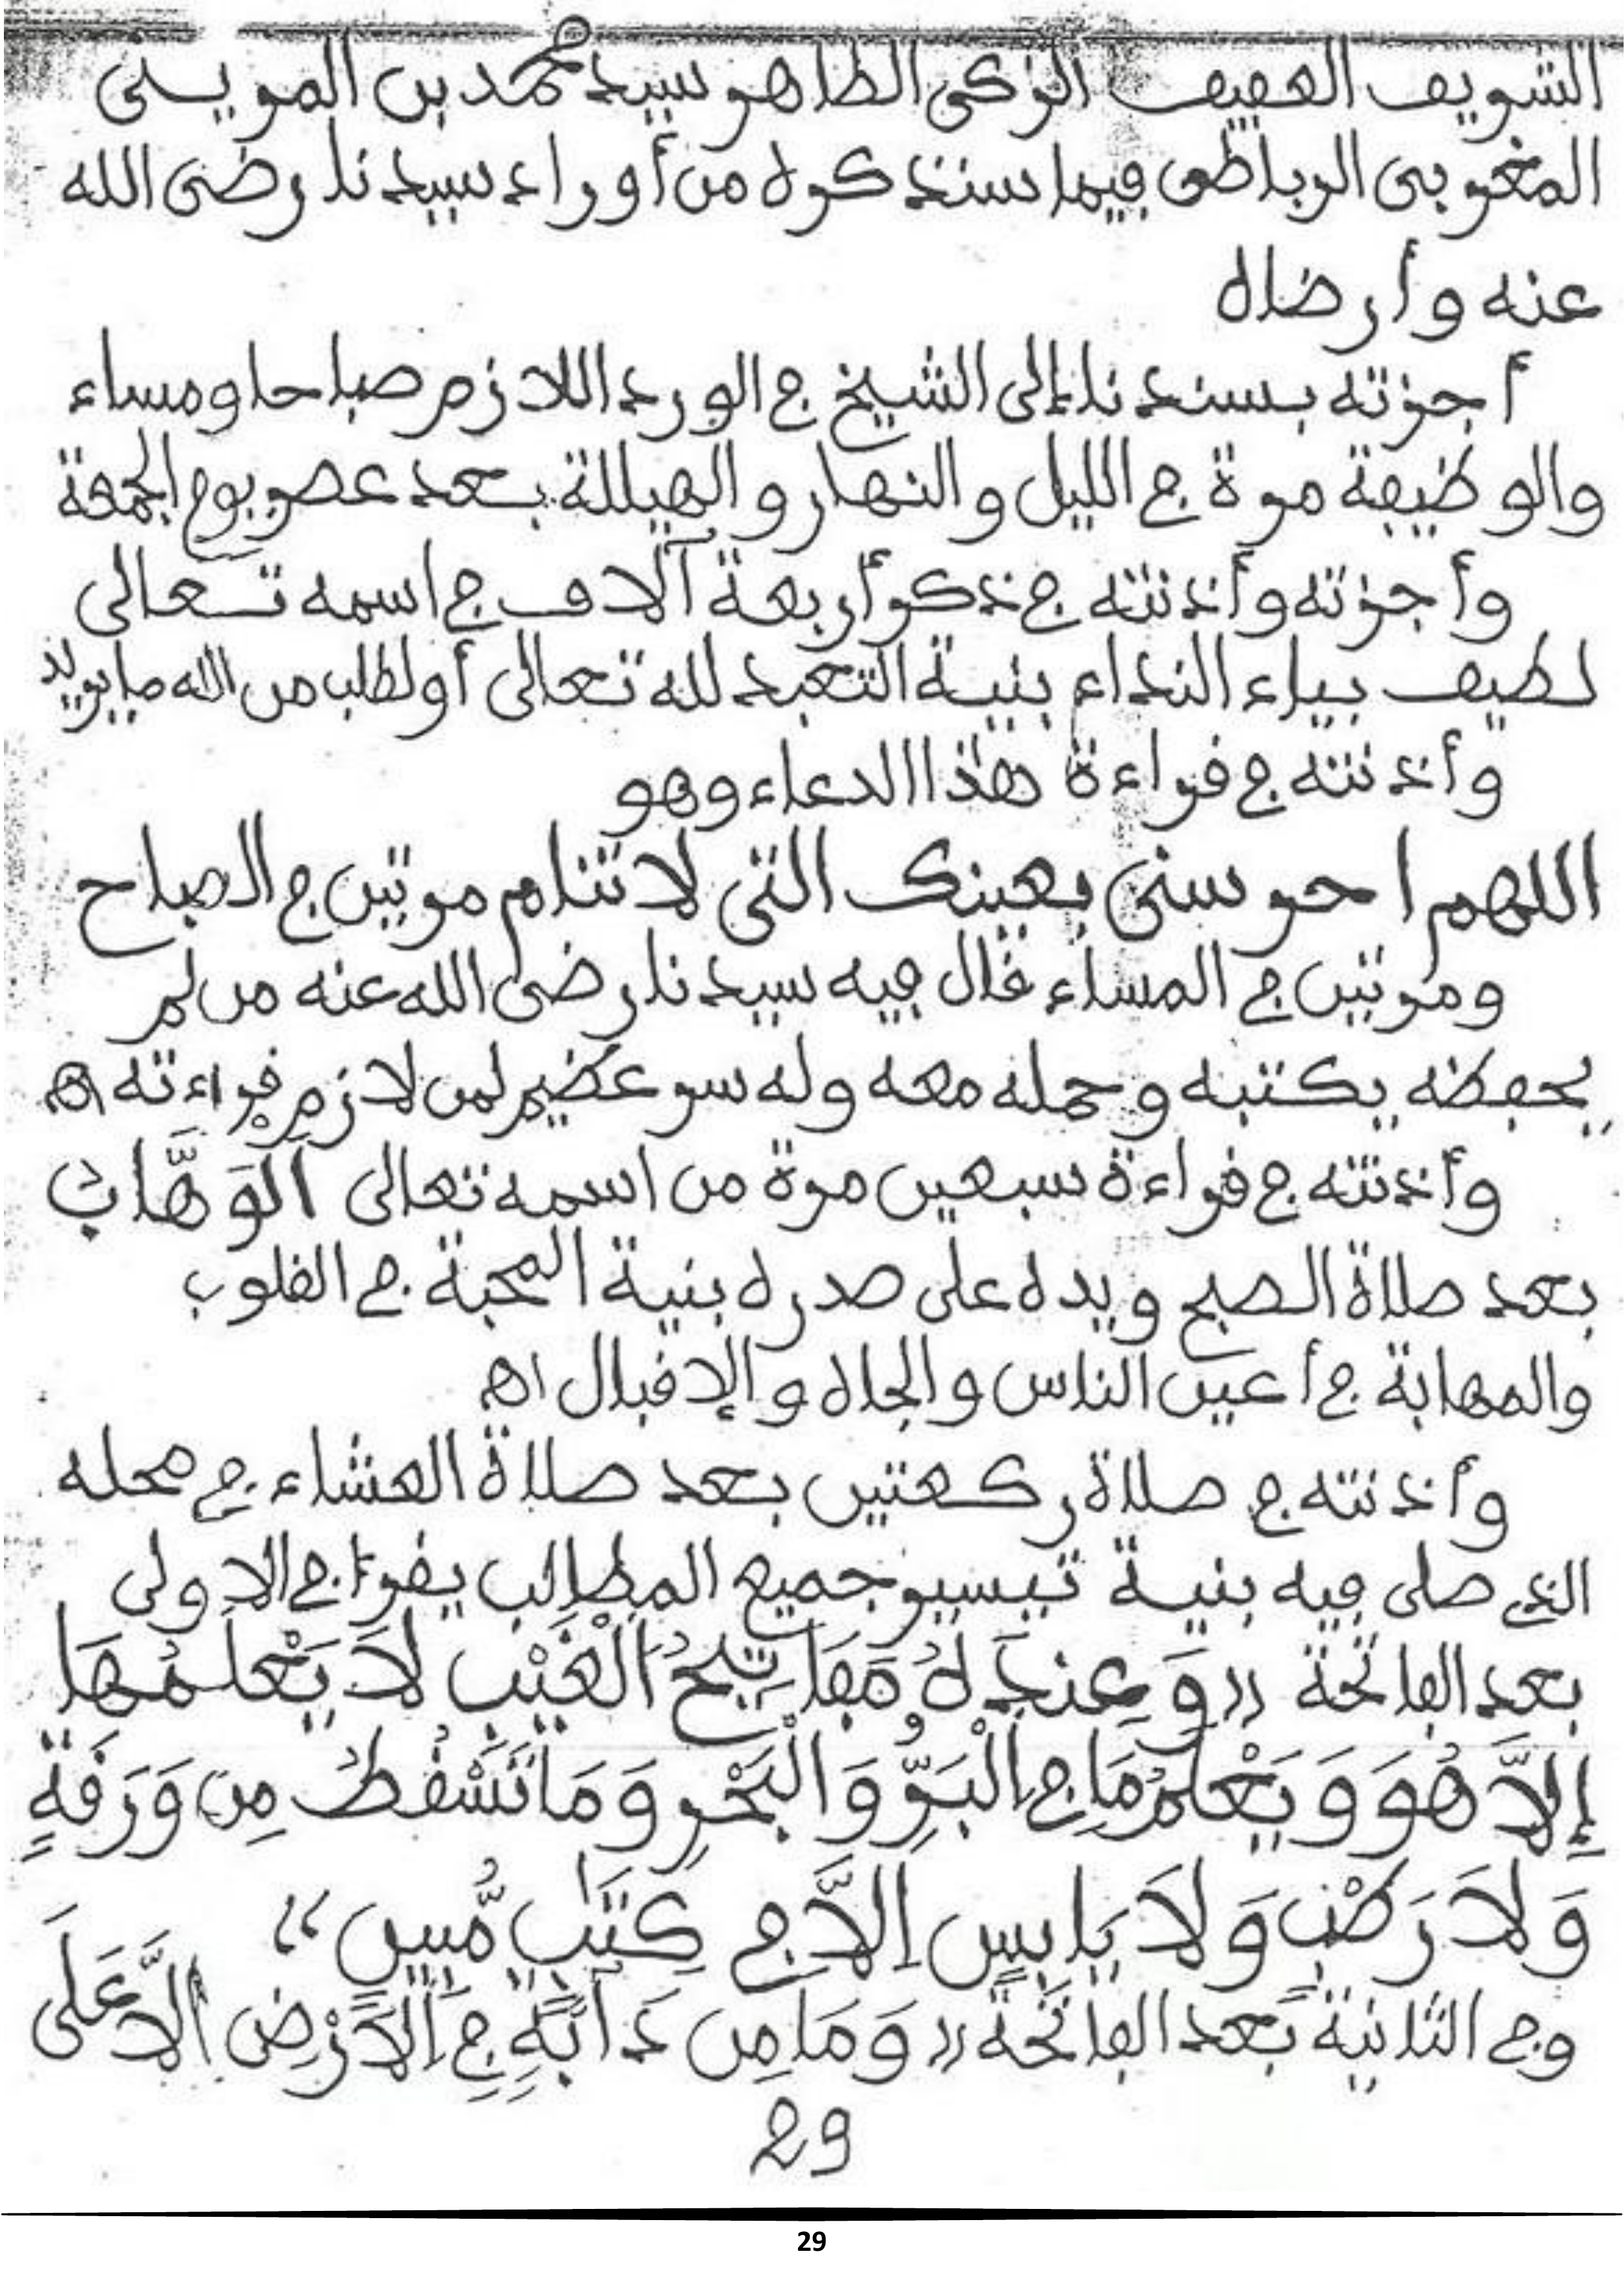 الشريف العفيف الزكي الطاهر سيد محمد بن المويسى
المغربي الرباطي فيما سنذكره من أوراد سيدنا رضي الله
عنه وأرضاه
أجزته بسندنا إلى الشيخ في الورد اللازم صباحا ومساء
والوظيفة مرة في الليل والنهار والهيللة بعد عصر يوم الجمعة
وأجزته وأذنته في ذكر أربعة آلاف في اسمه تعالى
لطيف بياء النداء بنية التعبد لله تعالى أو لطلب من الله ما يريد
وأذنته في قراءة هذا الدعاء وهو
اللهم احرسني بعينك التي لا تنام مرتين في الصباح
ومرتين في المساء قال فيه سيدنا رضي الله عنه من لم
يحفظه يكتبه وحمله معه وله سر عظيم لمن لازم قراءته اه
وأذنته في قراءة سبعين مرة من اسمه تعالى اَلْوَهَّابْ
بعد صلاة الصبح ويده على صدره بنية المحبة في القلوب
والمهابة في أعين الناس والجاه والإقبال اه
وأذنته في صلاة ركعتين بعد صلاة العشاء في محله
الذي صلى فيه بنية تيسير جميع المطالب يقرأ في الاولى
بعد الفاتحة « وَعِندَهُ مَفَاتِيحُ الْغَيْبِ لَا يَعْلَمُهَا
إِلَّا هُوَ وَيَعْلَمُ مَا فِي الْبَرِّ وَالْبَحْرِ وَمَا تَسْقُطُ مِن وَرَقَةٍ
وَلَا رَطْبٍ وَلَا يَابِسٍ إِلَّا فِي كِتَٰبٍ مُّبِينٍ »
وفي الثانية بعد الفاتحة « وَمَا مِن دَآبَّةٍ فِي اَلْأَرْضِ إِلَّا عَلَى
29
29